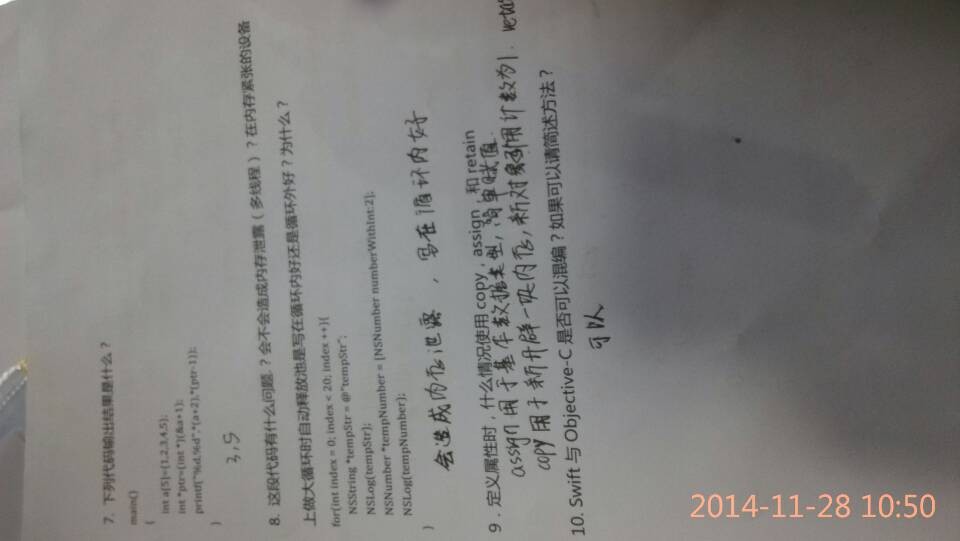 7. 下列代码输出结果是什么？
main()
{
int a[5]={1,2,3,4,5};
int *ptr=(int *)(&a+1);
printf("%d,%d",*(a+2),*(ptr-1));
}
3,5
8. 这段代码有什么问题？会不会造成内存泄露（多线程）？在内存紧张的设备
上做大循环时自动释放池是写在循环内好还是循环外好？为什么？
for(int index = 0; index < 20; index ++){
NSString *tempStr = @"tempStr";
NSLog(tempStr);
NSNumber *tempNumber = [NSNumber numberWithInt:2];
NSLog(tempNumber);
}
会造成内存泄露，写在循环内好
9. 定义属性时，什么情况使用 copy，assign，和 retain
assign用于基本数据类型，简单赋值
copy用于新开辟一块内存，新对象引用计数为1.
10. Swift 与 Objective-C 是否可以混编？如果可以请简述方法？
可以
2014-11-28 10:50